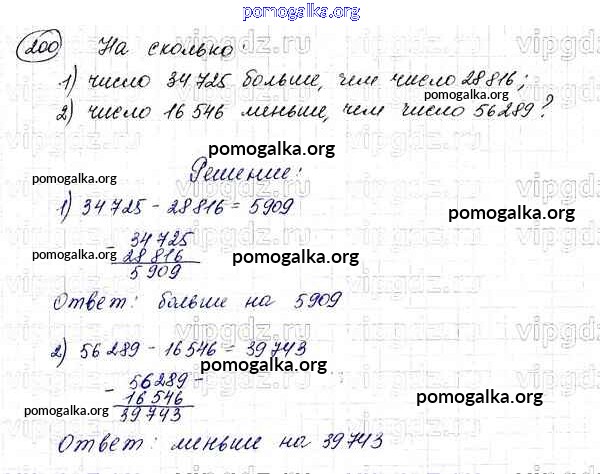 pomogalka.org
200 На сколько:
1) число 34 725 больше, чем число 28 816;
pomogalka.org
2) число 16 546 меньше, чем число 56 289?
pomogalka.org
Решение:
pomogalka.org
1) 34 725 - 28 816 = 5909
pomogalka.org
- 34 725
28 816
pomogalka.org
pomogalka.org
5 909
Ответ: больше на 5909
2) 56 289 - 16 546 = 39 743
pomogalka.org
- 56 289 -
16 546
pomogalka.org
pomogalka.org
39 743
Ответ: меньше на 39 743
vipgdz.ru